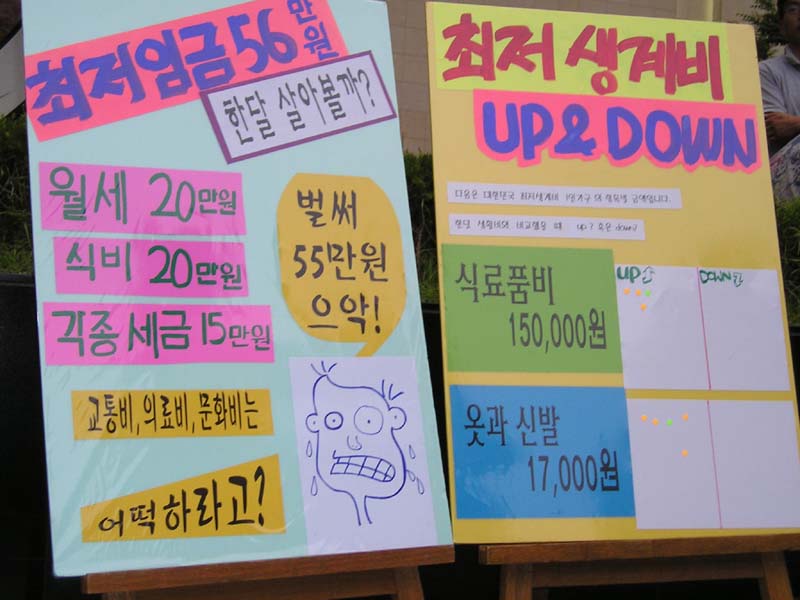 최저임금 56만원
한달 살아볼까?
월세 20만원
식비 20만원
각종세금 15만원
벌써
55만원
으악!
교통비, 의료비, 문화비는
어떡하라고?
최저 생계비
UP & DOWN
다음은 대한민국 최저생계비 1인가구의 항목별 금액입니다.
한달 생활비와 비교했을 때 up? 혹은 down?
식료품비
150,000원
UP
DOWN
옷과 신발
17,000원